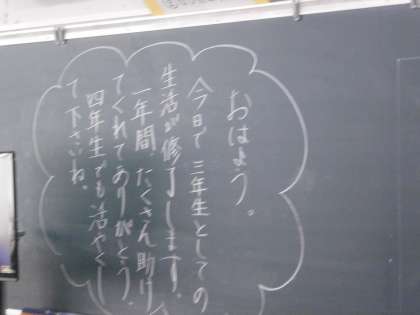 おはよう。
今日で三年生としての
生活が修了します。
一年間、たくさん助け
てくれてありがとう。
四年生でも活やくし
て下さいね。